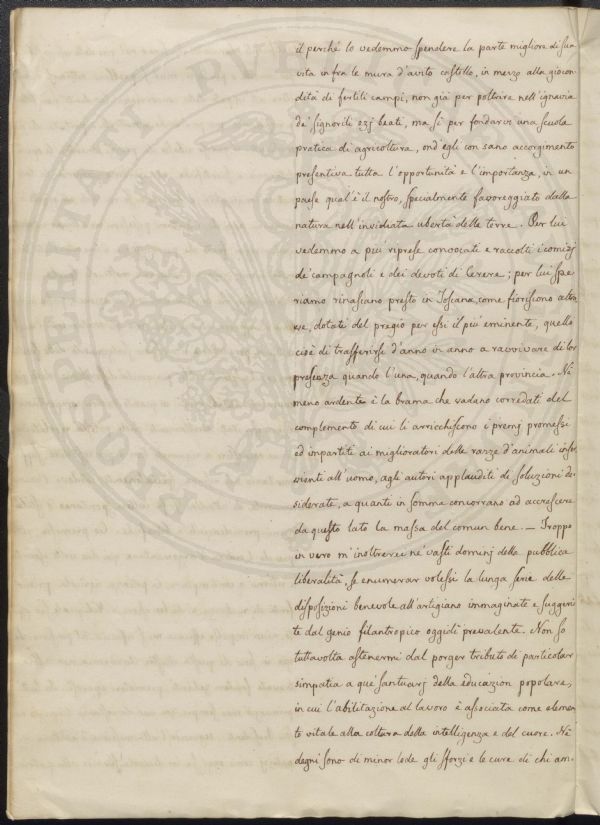 il perché lo vedemmo spendere la parte migliore di sua
vita in fra le mura d'avito castello, in mezzo alla giocon-
dità di fertili campi, non già per poltrire nell'ignavia
de' signorili ozj beati, ma sì per fondarvi una scuola
pratica di agricoltura, ond'egli con sano accorgimento
presentiva tutta l'opportunità e l'importanza, in un
paese qual'è il nostro, specialmente favoreggiato dalla
natura nell'invidiata ubertà delle terre. Per lui
vedemmo a più riprese convocati e raccolti i comizj
de' campagnoli e dei devoti di Cerere; per lui spe-
riamo rinascano presto in Toscana, come fioriscono altro-
ve, dotati del pregio per essi il più eminente, quello
cioè di trasferirsi d'anno in anno a ravvivare di lor
presenza quando l'una, quando l'altra provincia. Né
meno ardente è la brama che vadano corredati del
complemento di cui li arricchiscono i premj promessi
ed impartiti ai miglioratori delle razze d'animali inser-
vienti all'uomo, agli autori applauditi di soluzioni de-
siderate, a quanti in somma concorrano ad accrescere
da questo lato la massa del comun bene. — Troppo
in vero m'inoltrerei ne' vasti dominj della pubblica
liberalità, se enumerar volessi la lunga serie delle
disposizioni benevole all'artigiano immaginate e suggeri-
te dal genio filantropico oggidì prevalente. Non so
tuttavolta astenermi dal porger tributo di particolar
simpatia a que' santuarj della educazion popolare,
in cui l'abilitazione al lavoro è associata come elemen-
to vitale alla coltura della intelligenza e del cuore. Né
degni sono di minor lode gli sforzi e le cure di chi am-
PROSPERITATI PUBLI